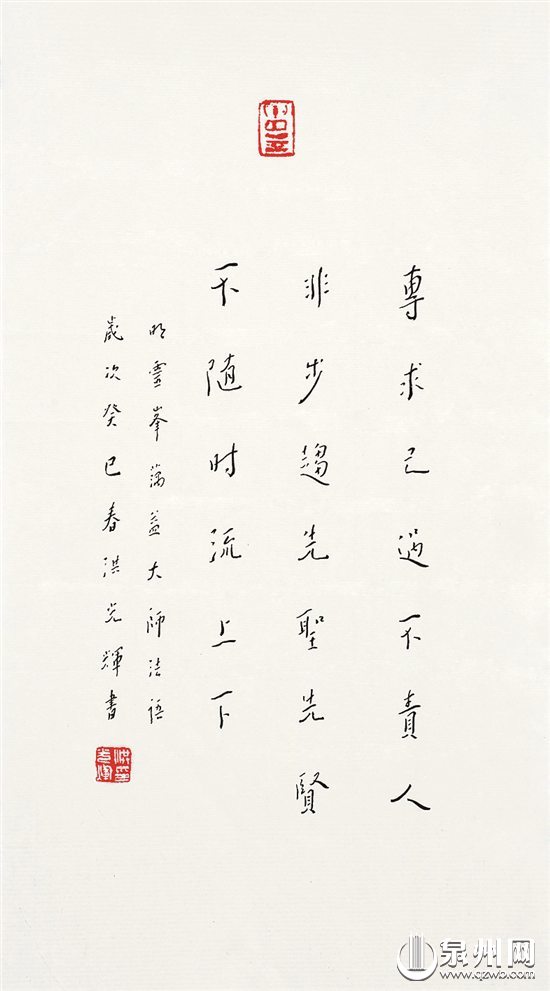 專求己過不責人
非步趨先聖先賢
不随时流上下
明靈峯蕅益大师法语
歲次癸巳春洪光輝書
泉州网
www.qzwb.com